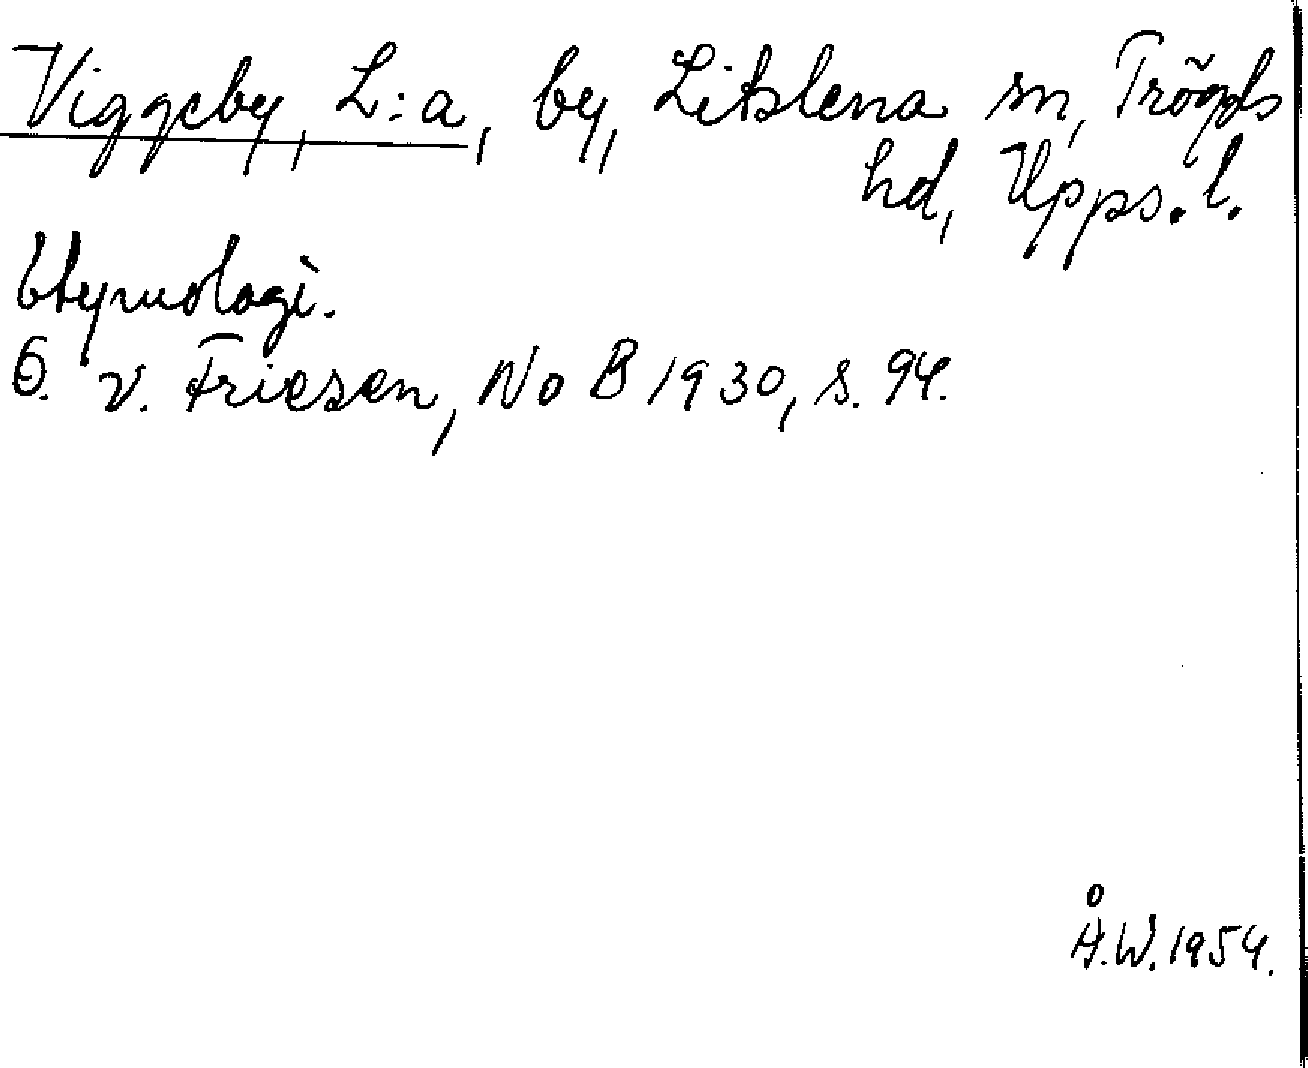 Viggeby, L:a, by, Litslena sn, Trögds
hd, Upps. l.
Etymologi.
O. v. Friesen, NoB 1930, s. 94.
Å.W. 1954.